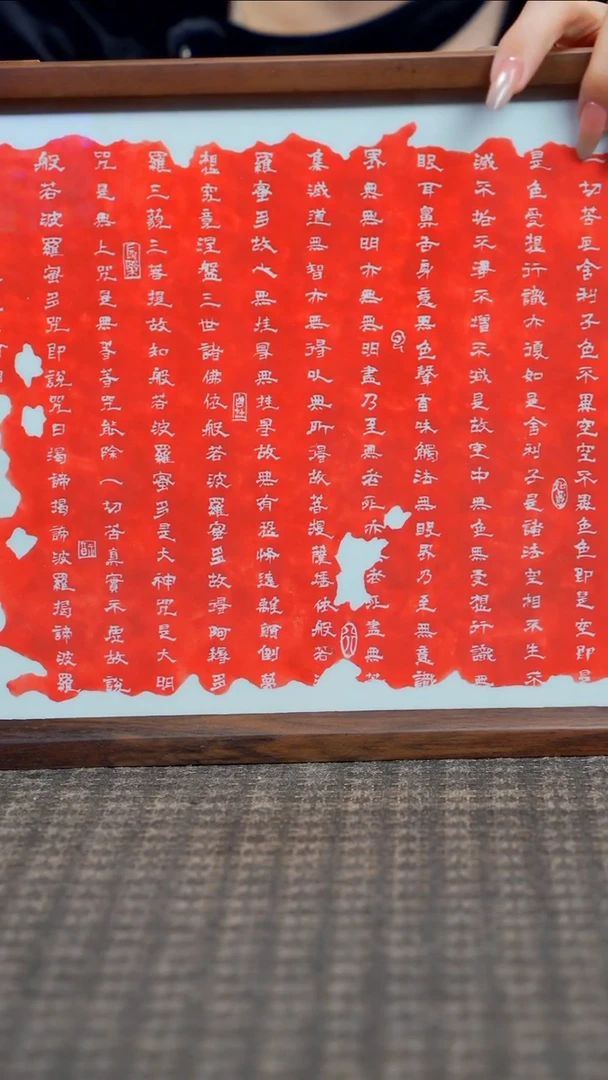 一切苦厄舍利子色不異空空不異色色即是空即是
是色受想行識亦復如是舍利子是諸法空相不生不
滅不垢不淨不增不減是故空中無色無受想行識無
眼耳鼻舌身意無色聲香味觸法無眼界乃至無意識
界無無明亦無無明盡乃至無老死亦老死盡無
集滅道無智亦無得以無所得故菩提薩埵依般若
羅蜜多故心無挂㝵無挂㝵故無有恐怖遠離顛倒夢
想究竟涅盤三世諸佛依般若波羅蜜多故得阿耨多
羅三藐三菩提故知般若波羅蜜多是大神咒是大明
咒是無上咒是無等等咒能除一切苦真實不虛故說
般若波羅蜜多咒即說咒曰揭諦揭諦波羅揭諦波羅